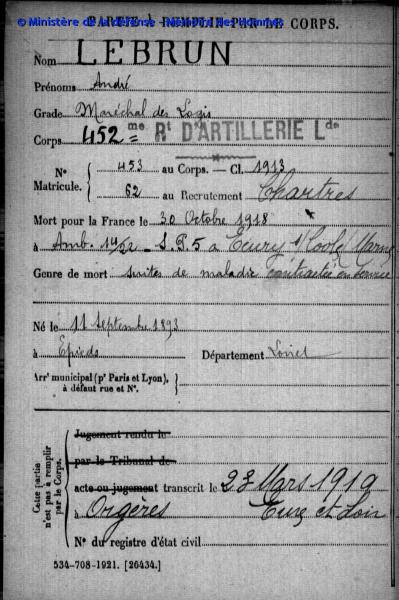 © Ministère de la défense - Mémoire des Hommes
PARTIE À REMPLIR PAR LE CORPS.
Nom LEBRUN
Prénoms André
Grade Maréchal des Logis
Corps 452me Rt D'ARTILLERIE Lde
No Matricule. { 453 au Corps. — Cl. 1913
62 au Recrutement Chartres
Mort pour la France le 30 Octobre 1918
à Amb. 14/22 - S.P.5 à Ecury s/Coole Marne
Genre de mort suites de maladie contractée en service
Né le 11 Septembre 1893
à Epieds Département Loiret
Arrt municipal (pr Paris et Lyon), à défaut rue et No. }
Cette partie n'est pas à remplir par le Corps.
Jugement rendu le
par le Tribunal de
acte ou jugement transcrit le 23 Mars 1919
à Orgères Eure et Loir
No du registre d'état civil
534-708-1921. [26434.]